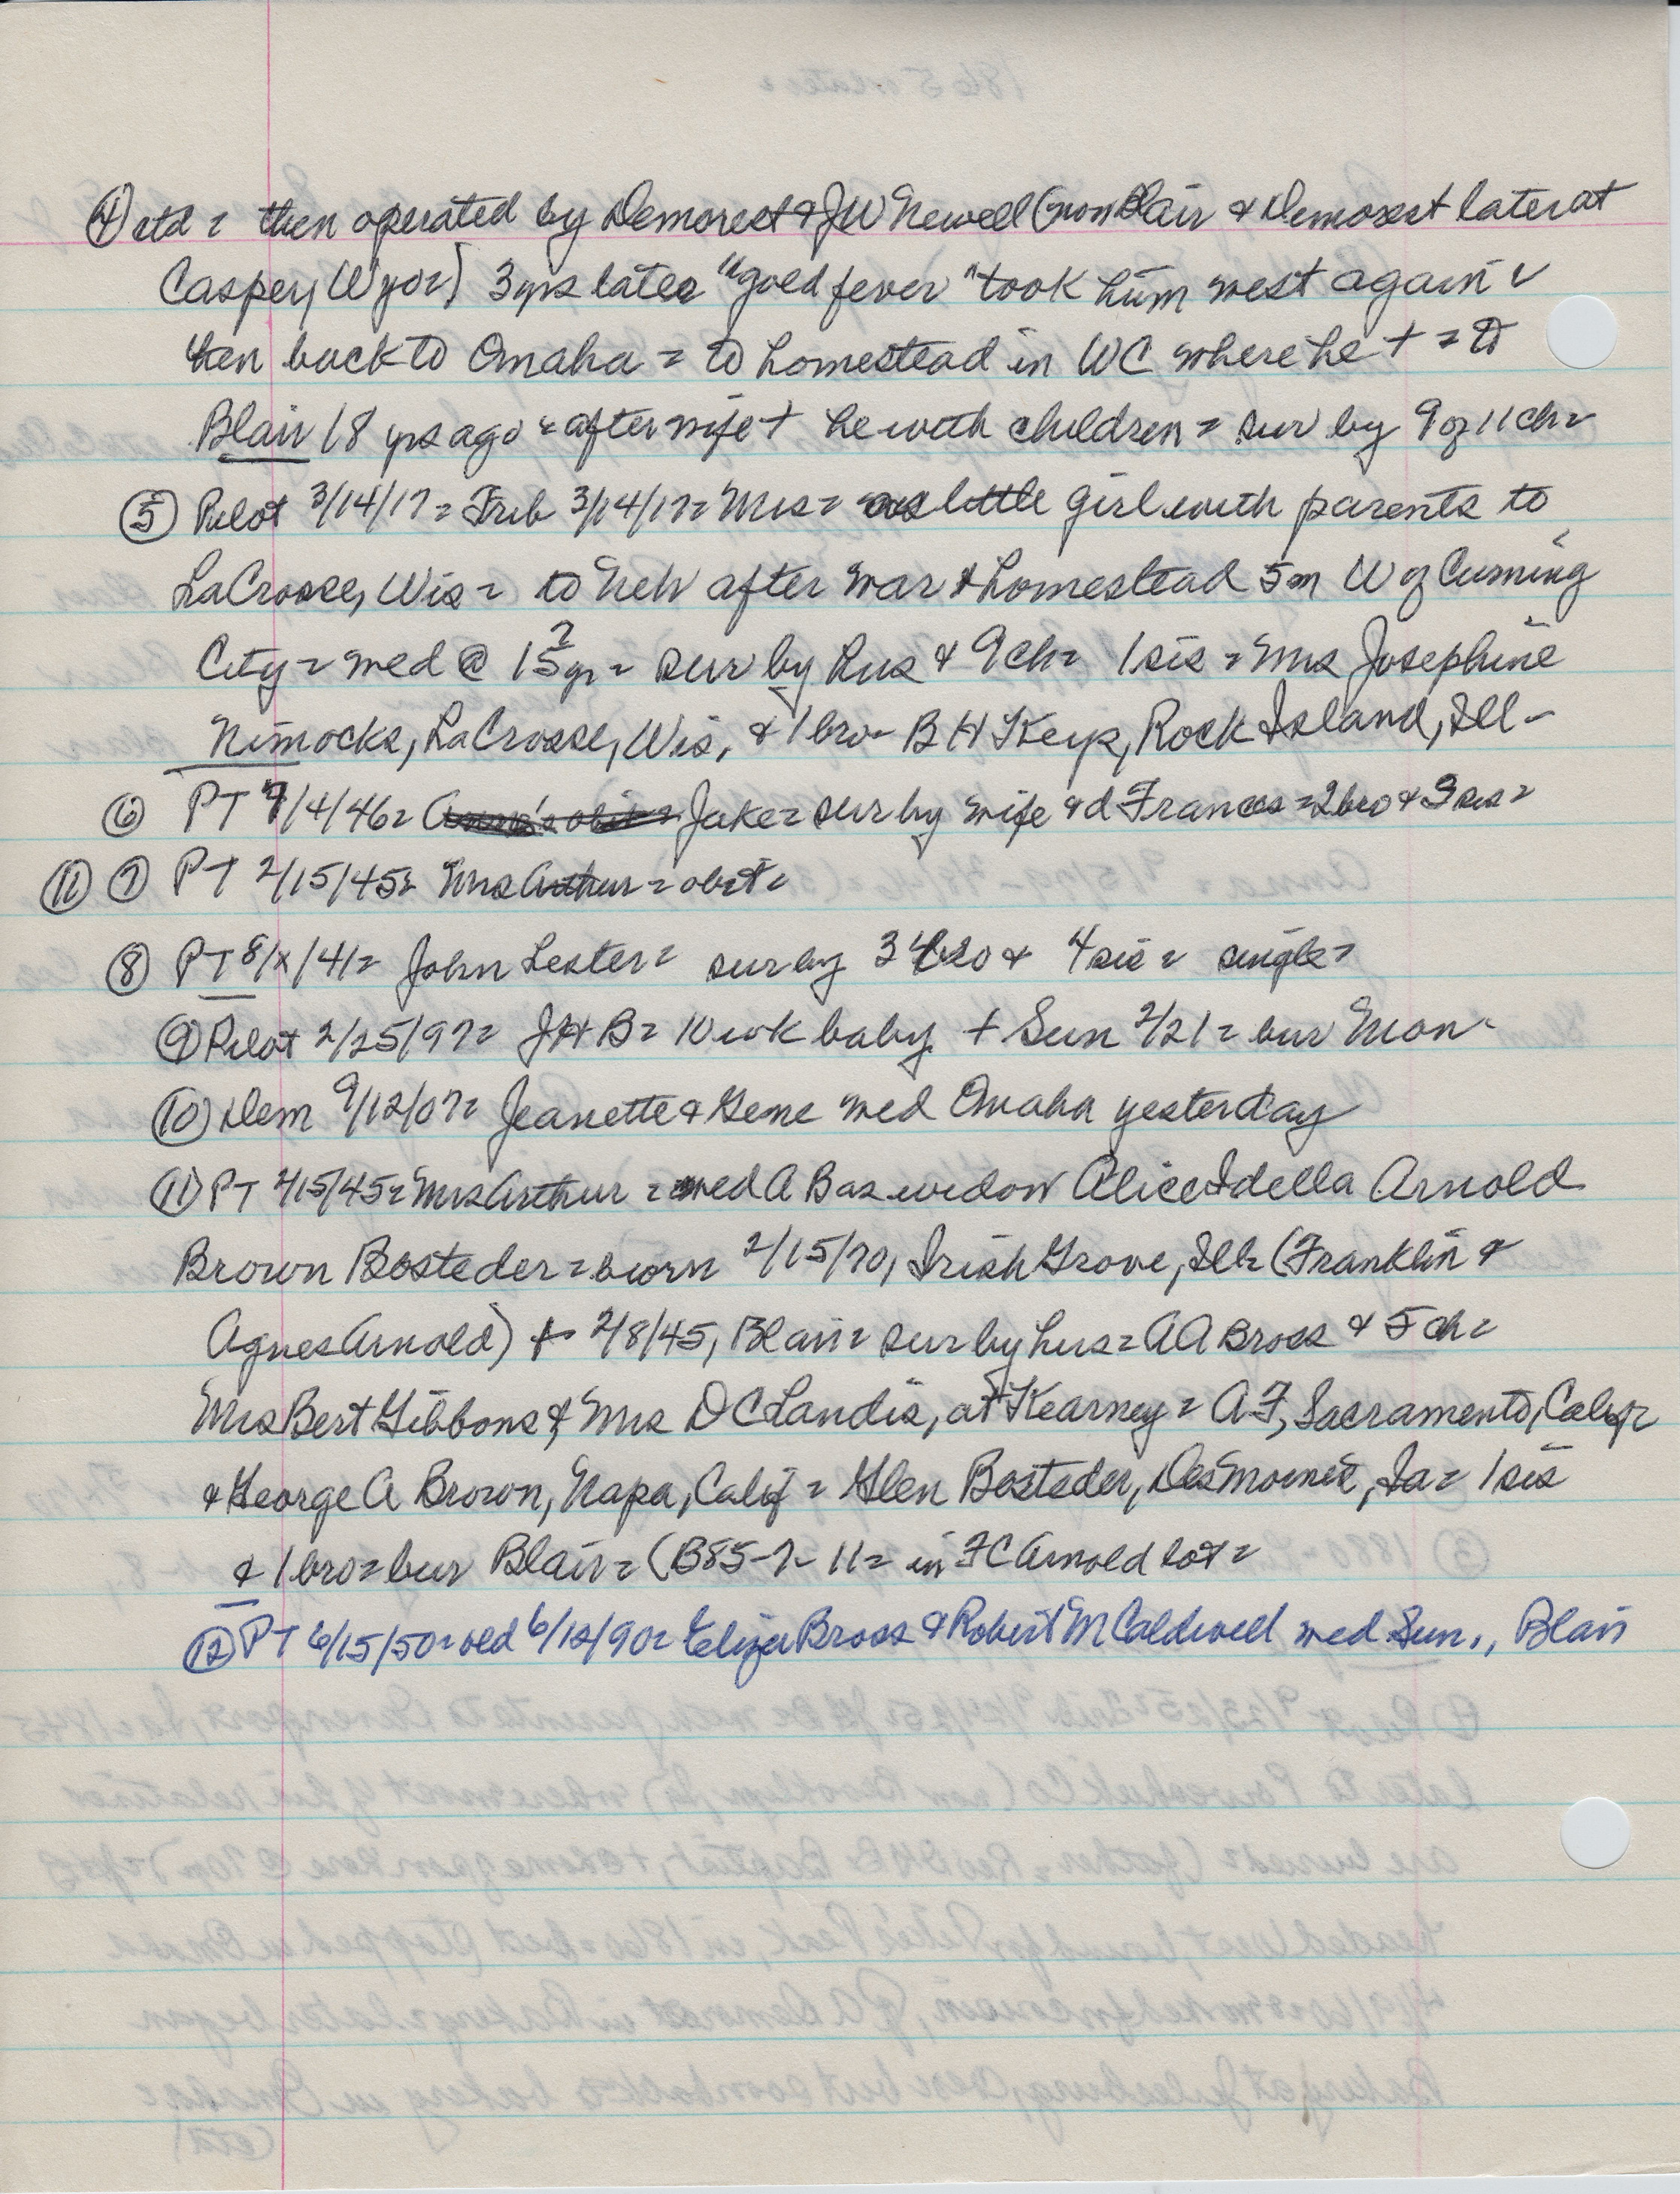 ④ ctd = then operated by Demorest & JW Newell (now Blair & Demorest later at
Casper, Wyo=) 3 yrs later "gold fever" took him west again =
then back to Omaha = to homestead in WC where he + = to
Blair 18 yrs ago = after wife + he with children = sur by 9 of 11 ch =
⑤ Pilot 3/14/17 = Trib 3/14/17 = Mrs = as little girl with parents to
LaCrosse, Wis = to Neb after war & homestead 5m W of Cuming
City = med @ 15? yr = sur by hus & 9 ch = 1 sis = Mrs Josephine
Nimocks, LaCrosse, Wis, & 1 bro - B H Keys, Rock Island, Ill -
⑥ PT 7/4/46 = Jake = sur by wife & d Frances = 2 bro & 3 sis =
⑪ ⑦ PT 2/15/45 = Mrs Arthur = obit =
⑧ PT 8/x/41 = John Lester = sur by 3 bro & 4 sis = single =
⑨ Pilot 2/25/97 = JHB = 10 wk baby + Sun 2/21 = bur Mon -
⑩ Dem 9/12/07 = Jeanette & Gene med Omaha yesterday
⑪ PT 2/15/45 = Mrs Arthur = med A B as widow Alice Idella Arnold
Brown Bosteder = born 2/15/70, Irish Grove, Ill = (Franklin &
Agnes Arnold) + 2/8/45, Blair = sur by hus = A A Bross & 5 ch =
Mrs Bert Gibbons & Mrs D C Landis, at Kearney = A F, Sacramento, Calif
& George A Brown, Napa, Calif = Glen Bosteder, Des Moines, Ia = 1 sis
& 1 bro = bur Blair = (B85-7-11 = in F C Arnold lot =
⑫ PT 6/15/50 = old 6/12/90 = Eliza Bross & Robert M Caldwell med Sun., Blair